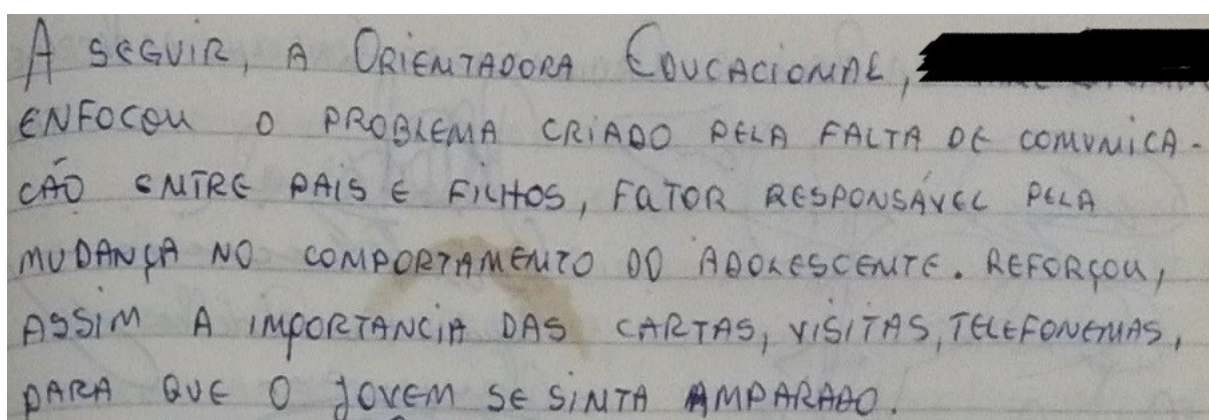 A SEGUIR, A ORIENTADORA EDUCACIONAL,
ENFOCOU O PROBLEMA CRIADO PELA FALTA DE COMUNICA-
CÃO ENTRE PAIS E FILHOS, FATOR RESPONSÁVEL PELA
MUDANÇA NO COMPORTAMENTO DO ADOLESCENTE. REFORÇOU,
ASSIM A IMPORTANCIA DAS CARTAS, VISITAS, TELEFONEMAS,
PARA QUE O JOVEM SE SINTA AMPARADO.